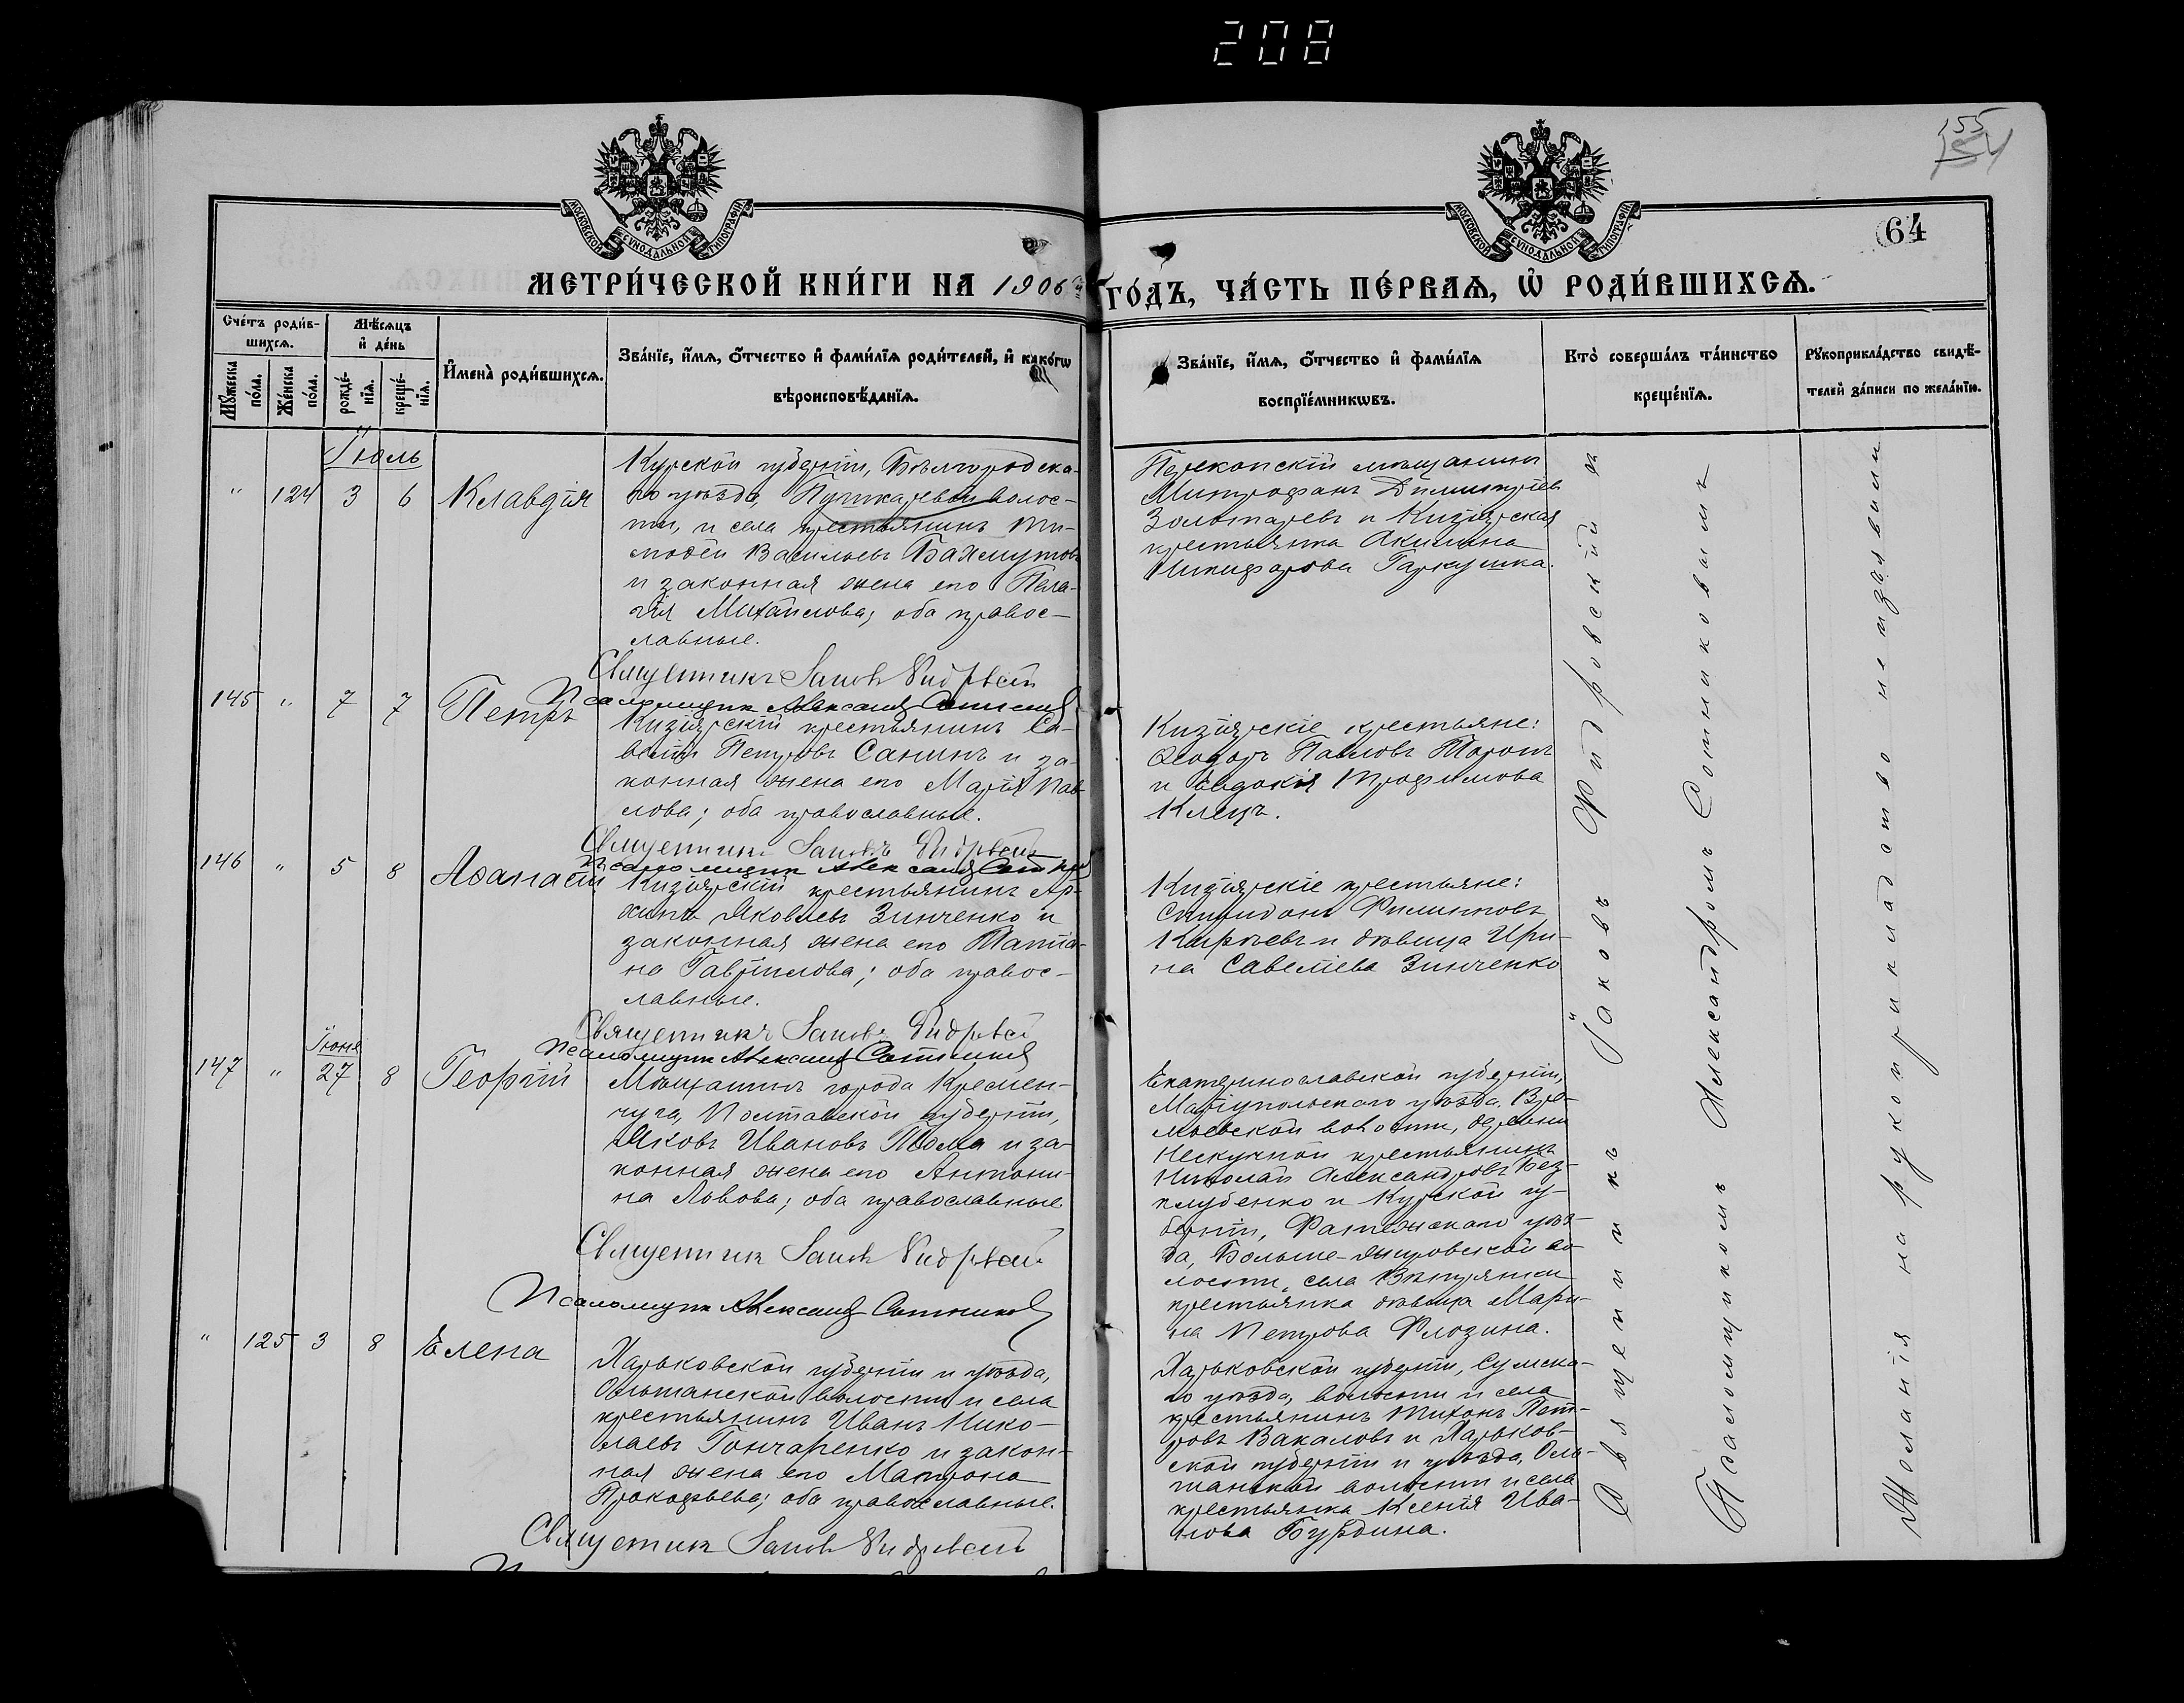 208
155
154
64
МОСКОВСКОЙ СѴНОДАЛЬНОЙ ТИПОГРАФІИ
МОСКОВСКОЙ СѴНОДАЛЬНОЙ ТИПОГРАФІИ
МЕТРИ́ЧЕСКОЙ КНИ́ГИ НА 1906
ГО́ДЪ, ЧА́СТЬ ПЕ́РВАѦ, Ѡ҆ РОДИ́ВШИХСѦ.
Сче́тъ роди́в-
шихсѧ.
Мѣ́сѧцъ
и҆ де́нь
Мꙋ́жеска по́ла.
Же́нска по́ла.
рожде́-нїѧ.
креще́-нїѧ.
И҆мена̀ роди́вшихсѧ.
Зва́нїе, и҆́мѧ, ѻ҆́тчество и҆ фами́лїѧ роди́телей, и҆ како́гѡ
вѣроисповѣ́данїѧ.
Зва́нїе, и҆́мѧ, ѻ҆́тчество и҆ фами́лїѧ
воспрїе́мникѡвъ.
Кто̀ соверша́лъ та́инство
креще́нїѧ.
Рꙋкоприкла́дство свидѣ́-
телей за́писи по жела́нїю.
Іюль
" 124 3 6 Клавдія
Курской губерніи, Бѣлгородска-
го уѣзда, Пушкарной волос-
ти, и села крестьянинъ Ти-
моѳей Васильевъ Бахмутовъ
и законная жена его Пела-
гія Михайлова; оба правос-
лавные.
Священникъ Іаковъ
Псаломщикъ Александръ Сотниковъ
Перекопскій мѣщанинъ
Митрофанъ Димитріевъ
Золотаревъ и Кизіярская
крестьянка Акилина
Никифорова Гаркушка.
145 " 7 7 Петръ
Кизіярскій крестьянинъ Са-
велій Петровъ Санинъ и за-
конная жена его Марія Пав-
лова; оба православные.
Священникъ Іаковъ
Псаломщикъ Александръ Сотниковъ
Кизіярскіе крестьяне:
Ѳеодоръ Павловъ
и Евдокія Трофимова
Клецъ.
146 " 5 8 Аѳанасій
Кизіярскій крестьянинъ Ар-
хипъ Яковлевъ Зинченко и
законная жена его Татіа-
на Гавріилова; оба правос-
лавные.
Священникъ Іаковъ
Псаломщикъ Александръ Сотниковъ
Кизіярскіе крестьяне:
Спиридонъ Филипповъ
Карпевъ и дѣвица Ири-
на Савеліева Зинченко
Іюня
147 " 27 8 Георгій
Мѣщанинъ города Кремен-
чуга, Полтавской губерніи,
Яковъ Ивановъ и за-
конная жена его Антони-
на Львова; оба православные
Священникъ Іаковъ
Псаломщикъ Александръ Сотниковъ
Екатеринославской губерніи,
Маріупольскаго уѣзда, Вре-
мьевской волости, деревни
Нескучной крестьянинъ
Николай Александровъ Без-
клубенко и Курской гу-
берніи, Фатежскаго уѣз-
да, Больше-Жировской во-
лости, села
крестьянка дѣвица Мари-
на Петрова Флозина.
" 125 3 8 Елена
Харьковской губерніи и уѣзда,
Ольшанской волости и села
крестьянинъ Иванъ Нико-
лаевъ Гончаренко и закон-
ная жена его Матрона
Прокофьева; оба православные.
Священникъ Іаковъ
Харьковской губерніи, Сумска-
го уѣзда, волости и села
крестьянинъ Тихонъ Пет-
ровъ Вакаловъ и Харьков-
ской губерніи и уѣзда, Оль-
шанской волости и села
крестьянка Ксенія Ива-
нова Бурдина.
Священникъ Іаковъ съ
Псаломщикомъ Александромъ Сотниковымъ
Желанія на рукоприкладство не изъявили